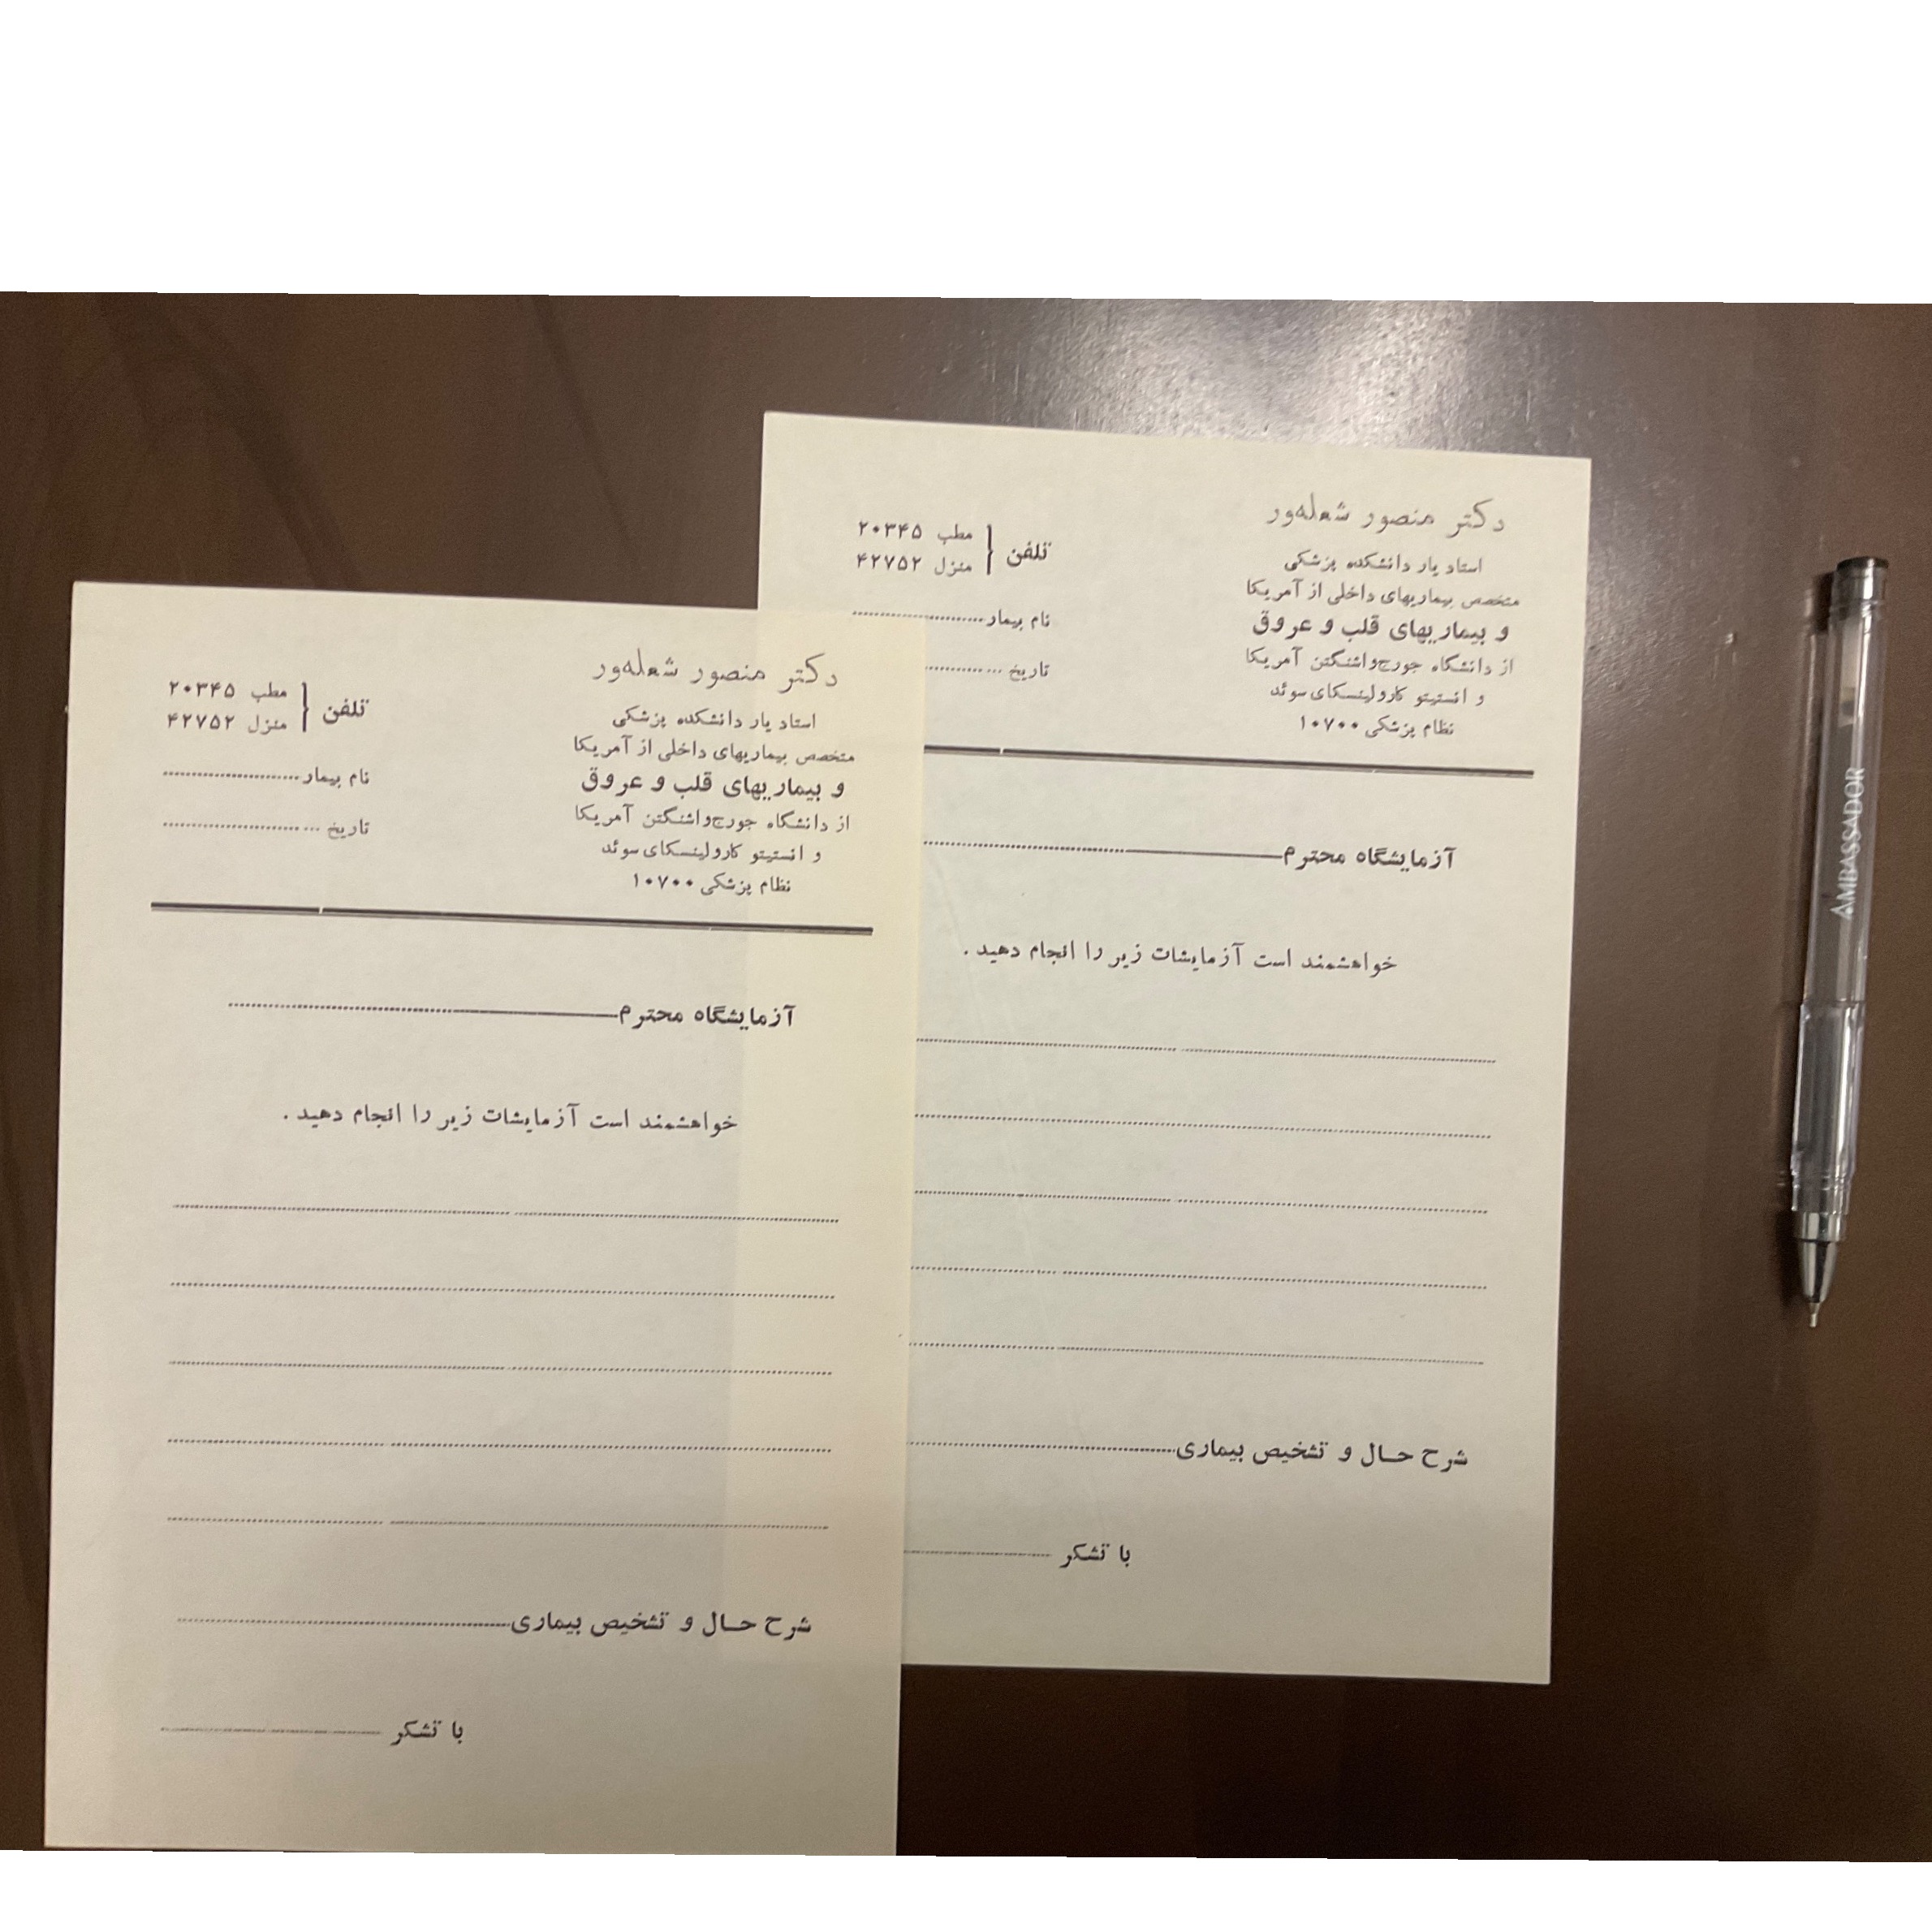 دکتر منصور شعله‌ور
استاد یار دانشکده پزشکی
متخصص بیماریهای داخلی از آمریکا
و بیماریهای قلب و عروق
از دانشگاه جورج‌واشنگتن آمریکا
و انستیتو کارولینسکای سوئد
نظام پزشکی ۱۰۷۰۰
تلفن
مطب ۲۰۳۴۵
منزل ۴۲۷۵۲
نام بیمار
تاریخ
آزمایشگاه محترم
خواهشمند است آزمایشات زیر را انجام دهید .
شرح حال و تشخیص بیماری
با تشکر
دکتر منصور شعله‌ور
استاد یار دانشکده پزشکی
متخصص بیماریهای داخلی از آمریکا
و بیماریهای قلب و عروق
از دانشگاه جورج‌واشنگتن آمریکا
و انستیتو کارولینسکای سوئد
نظام پزشکی ۱۰۷۰۰
تلفن
مطب ۲۰۳۴۵
منزل ۴۲۷۵۲
نام بیمار
تاریخ
آزمایشگاه محترم
خواهشمند است آزمایشات زیر را انجام دهید .
شرح حال و تشخیص بیماری
با تشکر
AMBASSADOR